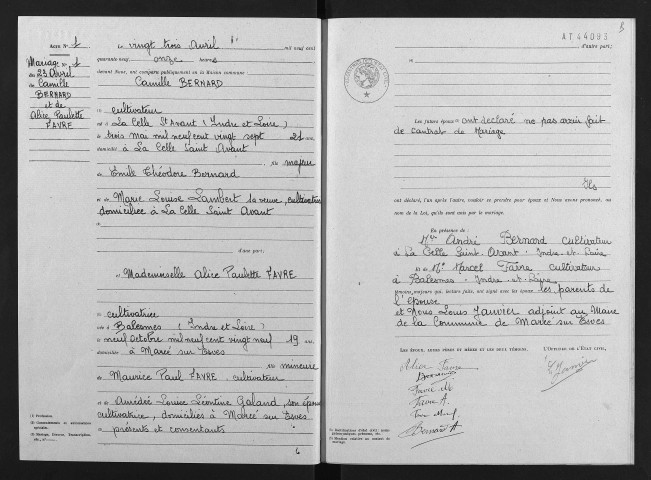 Acte N° 1
Mariage N° 1
du 23 Avril
de Camille
BERNARD
et de
Alice Paulette
FAVRE
Le vingt trois Avril mil neuf cent
quarante neuf onze heures
devant Nous, ont comparu publiquement en la Maison commune :
Camille BERNARD
cultivateur
né à La Celle St Avant (Indre et Loire)
le trois mai mil neuf cent vingt sept 21 ans,
domicilié à La Celle Saint Avant
fils majeur
de Emile Théodore Bernard
et de Marie Louise Lambert sa veuve, cultivatrice
domiciliée à La Celle Saint Avant
d'une part,
et Mademoiselle Alice Paulette FAVRE
cultivatrice
née à Balesmes (Indre et Loire)
le neuf Octobre mil neuf cent vingt neuf 19 ans,
domiciliée à Marcé sur Esves
fille mineure
de Maurice Paul FAVRE, cultivateur
et de Amédée Louise Léontine Galand, son épouse
cultivatrice, domiciliés à Marcé sur Esves
présents et consentants
(1) Profession.
6
3
AT44093
d'autre part;
Les futurs époux ont déclaré ne pas avoir fait
de contrat de Mariage
Ils
ont déclaré, l'un après l'autre, vouloir se prendre pour époux et Nous avons prononcé, au
nom de la Loi, qu'ils sont unis par le mariage.
En présence de :
Mr André Bernard cultivateur
à La Celle Saint-Avant - Indre-et-Loire
et de Mr Marcel Favre cultivateur
à Balesmes - Indre-et-Loire
témoins majeurs qui, lecture faite, ont signé avec les époux les parents de
l'épouse
et Nous Louis Janvier adjoint au Maire
de la Commune de Marcé sur Esves
Les époux, leurs pères et mères et les dits témoins,
L'Officier de l'État Civil,
Alice Favre
Bernard
Favre A.
Bernard A
Janvier